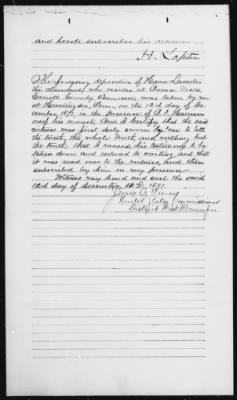 and hereto subscribes his name
H. Lapsten
The foregoing deposition of
the claimant who resides at
Carroll County, Tennessee, was taken by me
at Huntingdon, Tenn, on the 12th day of De-
cember 1871, in the presence of
of his counsel. And I certify that the said
witness was first duly sworn by me to tell
the truth, the whole truth, and nothing but
the truth, that I caused his testimony to be
taken down and reduced to writing, and that
it was read over to the witness, and then
subscribed by him in my presence
Witness my hand and seal the said
12th day of December A.D. 1871.
United States Commissioner
District West Tennessee